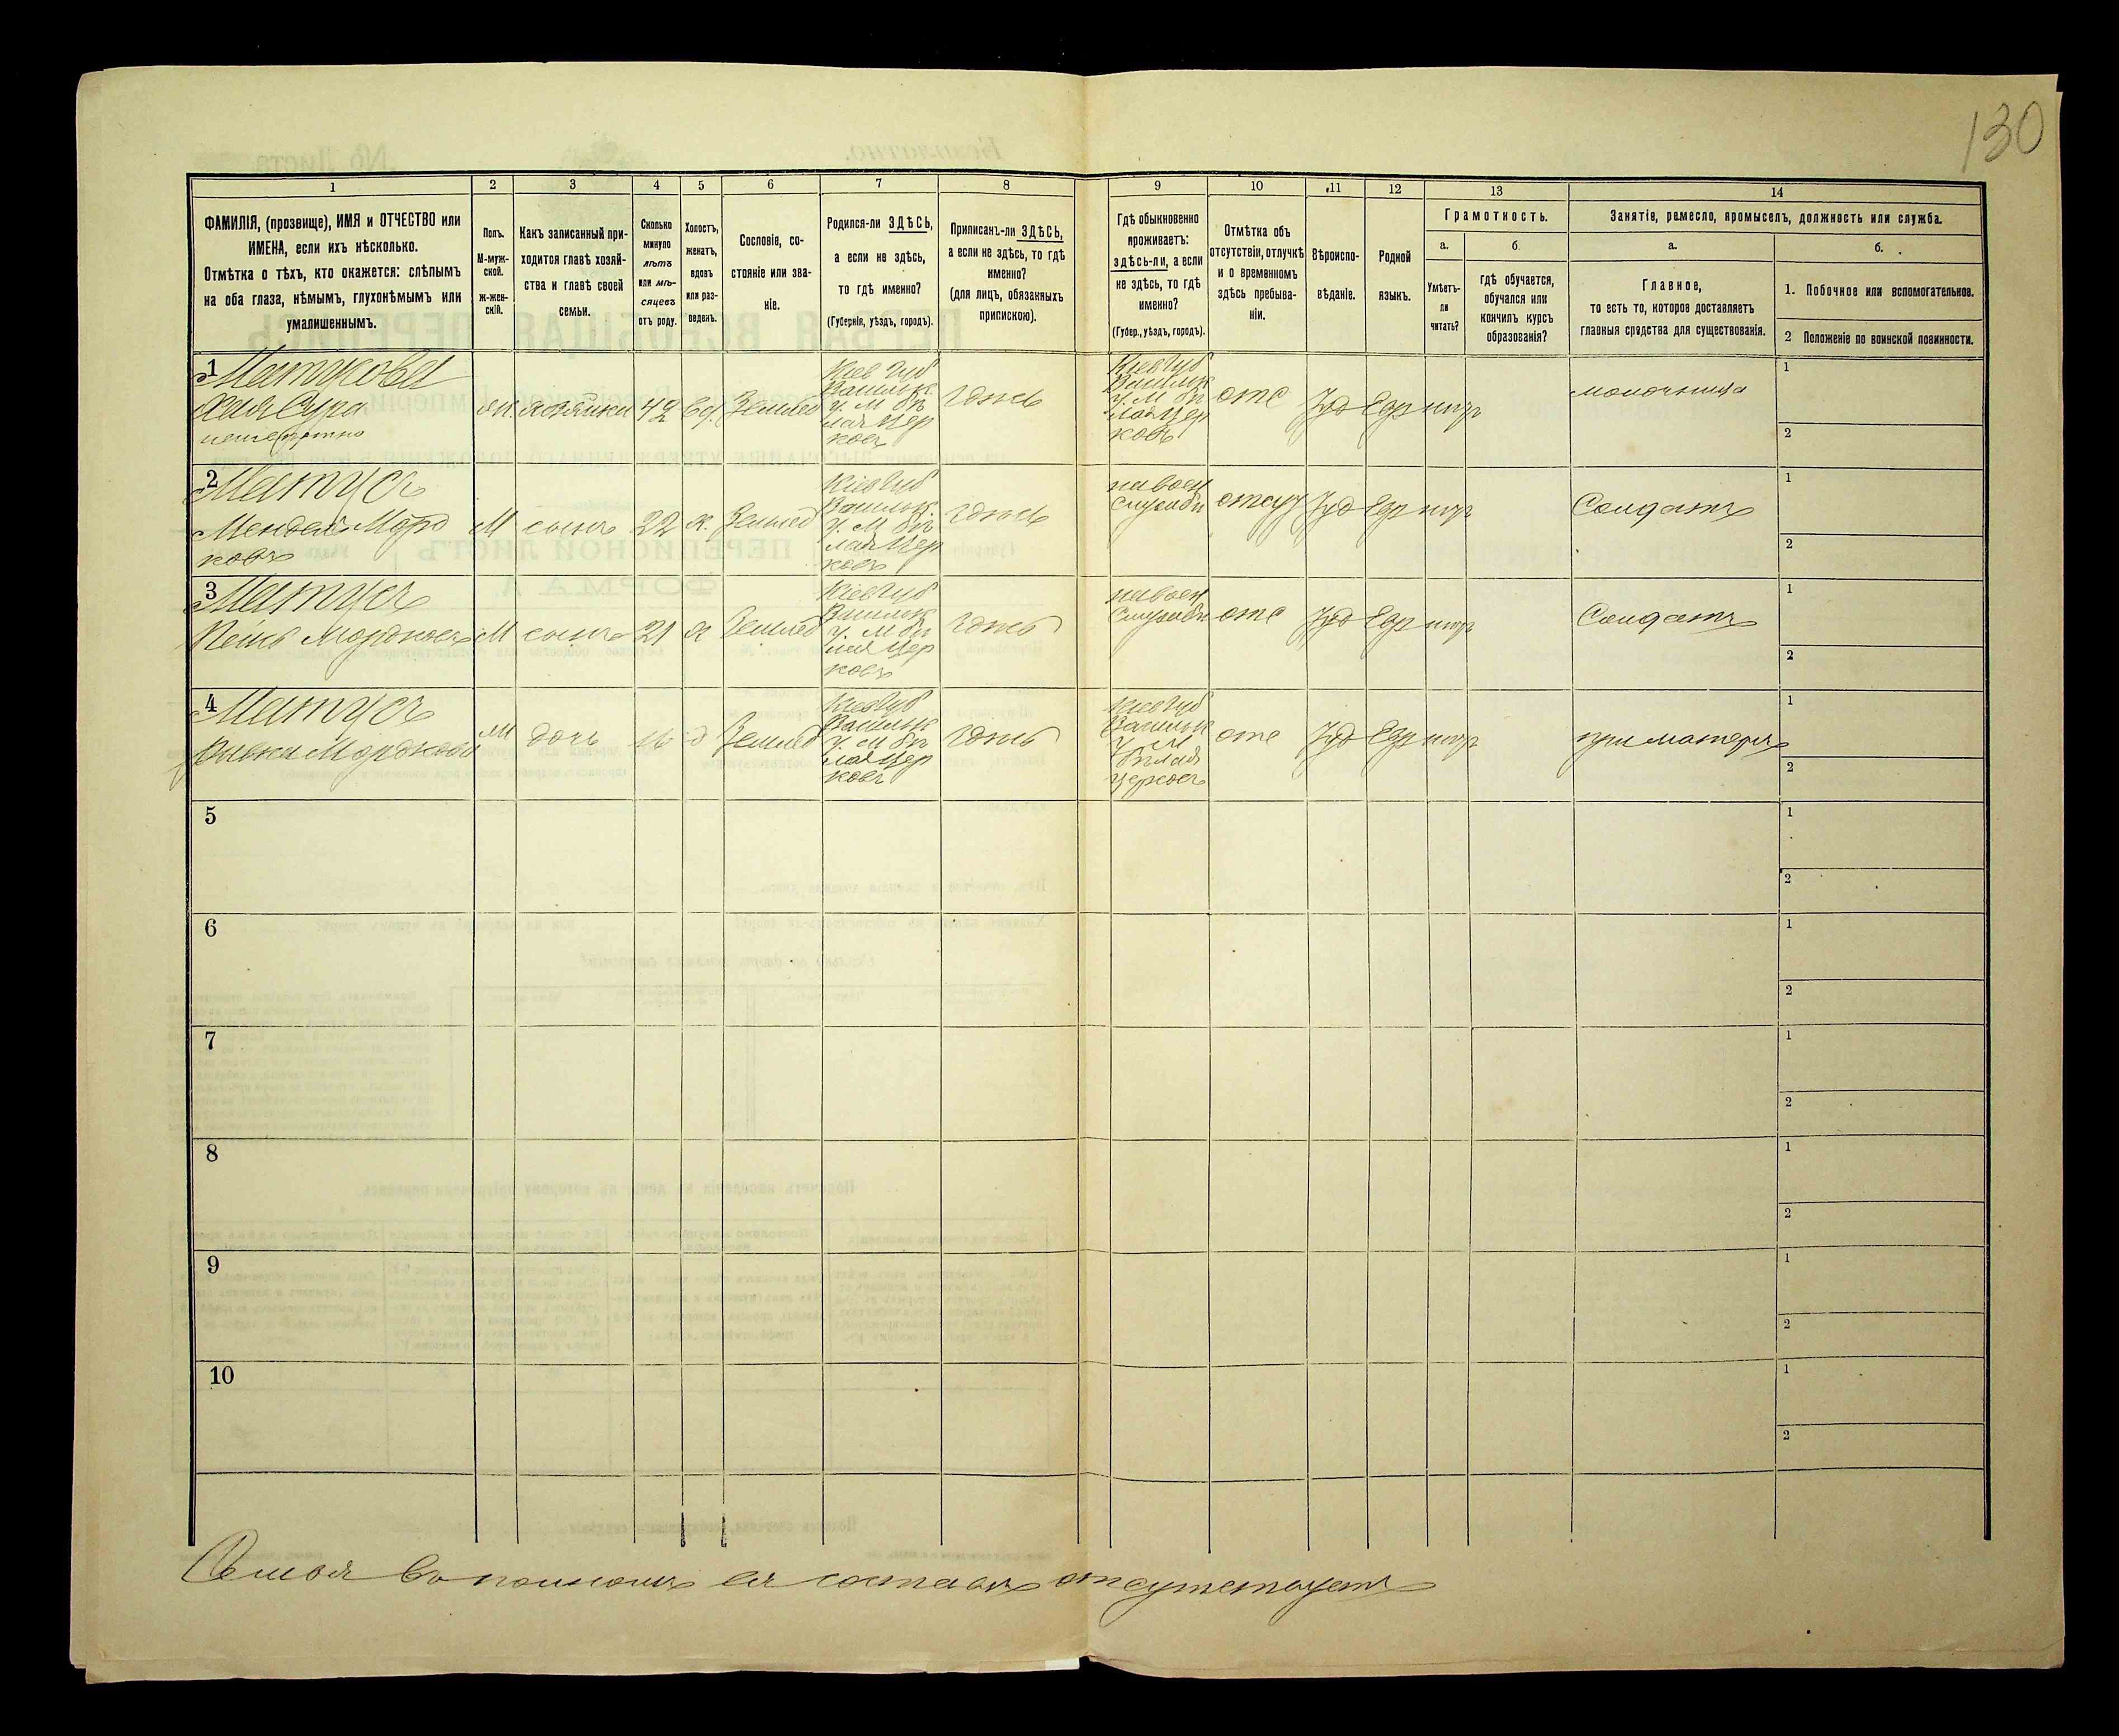 130
1 2 3 4 5 6 7 8 9 10 11 12 13 14
ФАМИЛІЯ, (прозвище), ИМЯ и ОТЧЕСТВО или
ИМЕНА, если ихъ нѣсколько.
Отмѣтка о тѣхъ, кто окажется: слѣпымъ
на оба глаза, нѣмымъ, глухонѣмымъ или
умалишеннымъ.
Полъ.
М-муж-
ской.
Ж-жен-
скій.
Какъ записанный при-
ходится главѣ хозяй-
ства и главѣ своей
семьи.
Сколько
минуло
лѣтъ
или мѣ-
сяцевъ
отъ роду.
Холостъ,
женатъ,
вдовъ
или раз-
веденъ.
Сословіе, со-
стояніе или зва-
ніе.
Родился-ли ЗДѢСЬ,
а если не здѣсь,
то гдѣ именно?
(Губернія, уѣздъ, городъ).
Приписанъ-ли ЗДѢСЬ,
а если не здѣсь, то гдѣ
именно?
(для лицъ, обязанныхъ
припискою).
Гдѣ обыкновенно
проживаетъ:
здѣсь-ли, а если
не здѣсь, то гдѣ
именно?
(Губер., уѣздъ, городъ).
Отмѣтка объ
отсутствіи, отлучкѣ
и о временномъ
здѣсь пребыва-
ніи.
Вѣроиспо-
вѣданіе.
Родной
языкъ.
Грамотность.
а.
Умѣетъ-
ли
читать?
б.
гдѣ обучается,
обучался или
кончилъ курсъ
образованія?
Занятіе, ремесло, промыселъ, должность или служба.
а.
Главное,
то есть то, которое доставляетъ
главныя средства для существованія.
б.
1. Побочное или вспомогательное.
2 Положеніе по воинской повинности.
1
Хая Сура
хозяйка 42 вд. Землед
Кіев Губ
Васильк.
у. М Бѣ
лая Цер
ковь
здѣсь
Кіев Губ
Васильк
у. М Бѣ
лая Цер
ковь
отс Іуд Евр негр
молочница
1
2
2
Матусъ
Мендель Мордо
ковъ
М сынъ 22 х. Землед
Кіев Губ
Васильк.
у. М Бѣ
лая Цер
ковь
здѣсь
на воен
службѣ
отсут Іуд Евр негр
Солдатъ
1
2
3
Матусъ
М сынъ 21 х Землед
Кіев Губ
Васильк
у. М Бѣ
лая Цер
ковь
здѣсь
на воен
службѣ
отс Іуд Евр негр
Солдатъ
1
2
4
Матусъ
Ривка Мордкова
дочь 16 д Землед
Кіев Губ
Васильк
у. М Бѣ
лая Цер
ковь
здѣсь
Кіев Губ
Васильк
у м
Бѣлая
Церковь
отс Іуд Евр негр
при матери
1
2
5
1
2
6
1
2
7
1
2
8
1
2
9
1
2
10
1
2
Семья въ полномъ ея составѣ отсутствуетъ